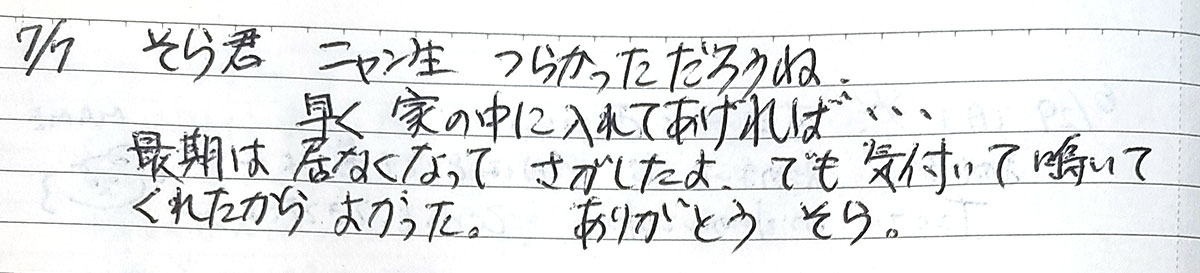 7/7 そら君 ニャン生 つらかっただろうね.
早く家の中に入れてあげれば…
最期は居なくなってさがしたよ. でも気付いて鳴いて
くれたからよかった。 ありがとう そら。